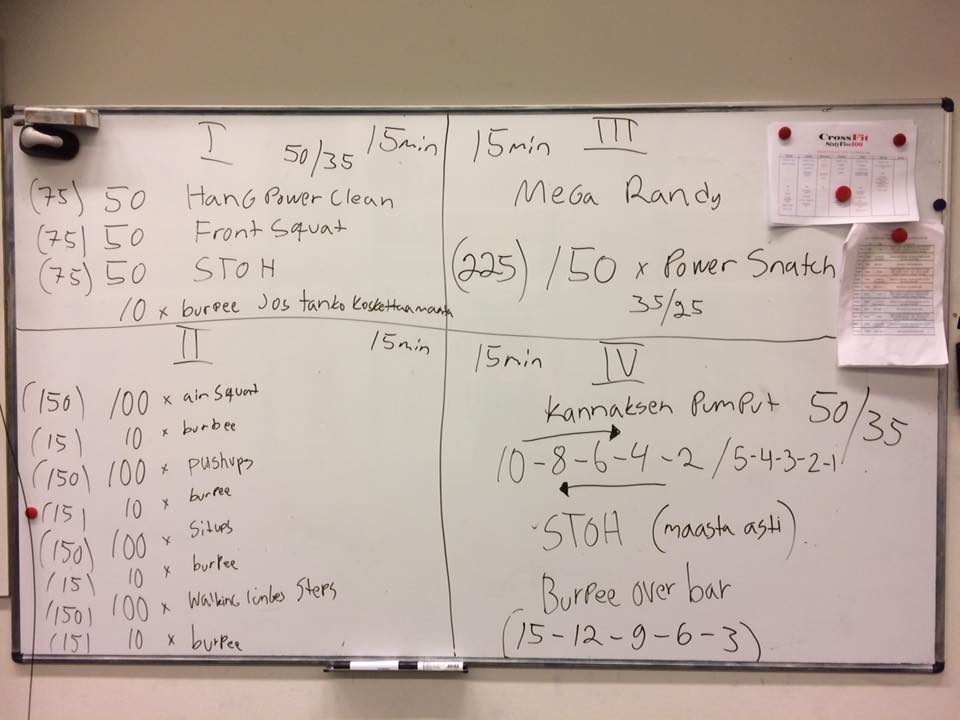 I
50/35 15min
(75) 50 Hang Power Clean
(75) 50 Front Squat
(75) 50 STOH
10 x burpee Jos tanko koskettaa maata
II
15min
(150) 100 x air squat
(15) 10 x burbee
(150) 100 x pushups
(15) 10 x burpee
(150) 100 x situps
(15) 10 x burpee
(150) 100 x Walking lunges Steps
(15) 10 x burpee
15min III
Mega Randy
(225) /50 x Power Snatch
35/25
15min IV
Kannaksen Pumput 50/35
10-8-6-4-2 /5-4-3-2-1
STOH (maasta asti)
Burpee over bar
(15-12-9-6-3)
CrossFit
SixtyFive100